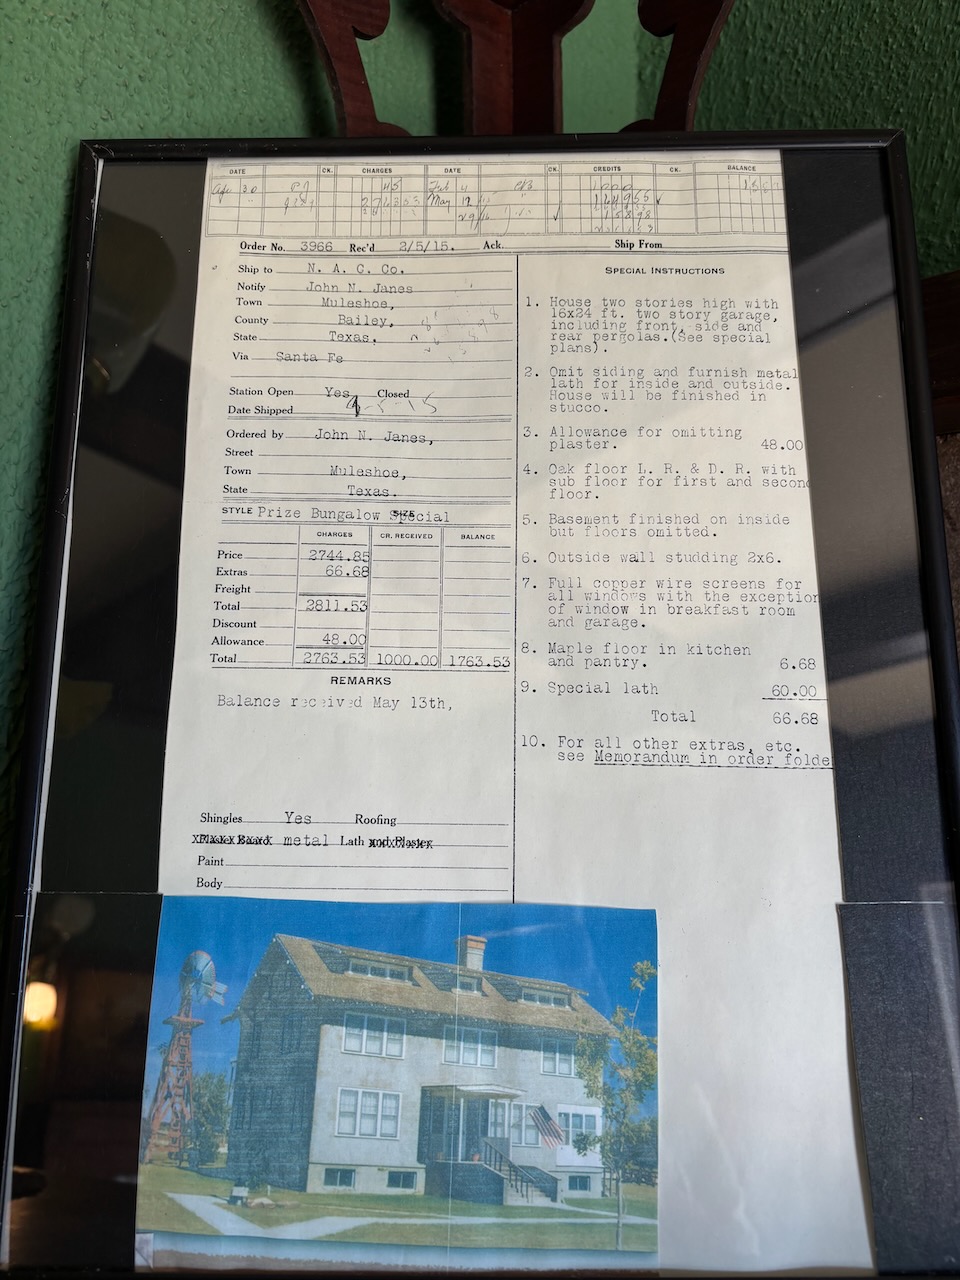 DATE CK. CHARGES DATE CK. CREDITS CK. BALANCE
30 45 Feb 4 1000
May 12
Order No. 3966 Rec'd 2/5/15. Ack. Ship From
Ship to N. A. C. Co.
Notify John N. Janes
Town Muleshoe,
County Bailey,
State Texas.
Via Santa Fe
Station Open Yes Closed
Date Shipped
Ordered by John N. Janes,
Street
Town Muleshoe,
State Texas.
STYLE Prize Bungalow SIZE Special
CHARGES CR. RECEIVED BALANCE
Price 2744.85
Extras 66.68
Freight
Total 2811.53
Discount
Allowance 48.00
Total 2763.53 1000.00 1763.53
REMARKS
Balance received May 13th,
Shingles Yes Roofing
Plaster Board metal Lath and Plaster
Paint
Body
SPECIAL INSTRUCTIONS
1. House two stories high with
16x24 ft. two story garage,
including front, side and
rear pergolas.(See special
plans).
2. Omit siding and furnish metal
lath for inside and outside.
House will be finished in
stucco.
3. Allowance for omitting
plaster. 48.00
4. Oak floor L. R. & D. R. with
sub floor for first and second
floor.
5. Basement finished on inside
but floors omitted.
6. Outside wall studding 2x6.
7. Full copper wire screens for
all windows with the exception
of window in breakfast room
and garage.
8. Maple floor in kitchen
and pantry. 6.68
9. Special lath 60.00
Total 66.68
10. For all other extras, etc.
see Memorandum in order folde